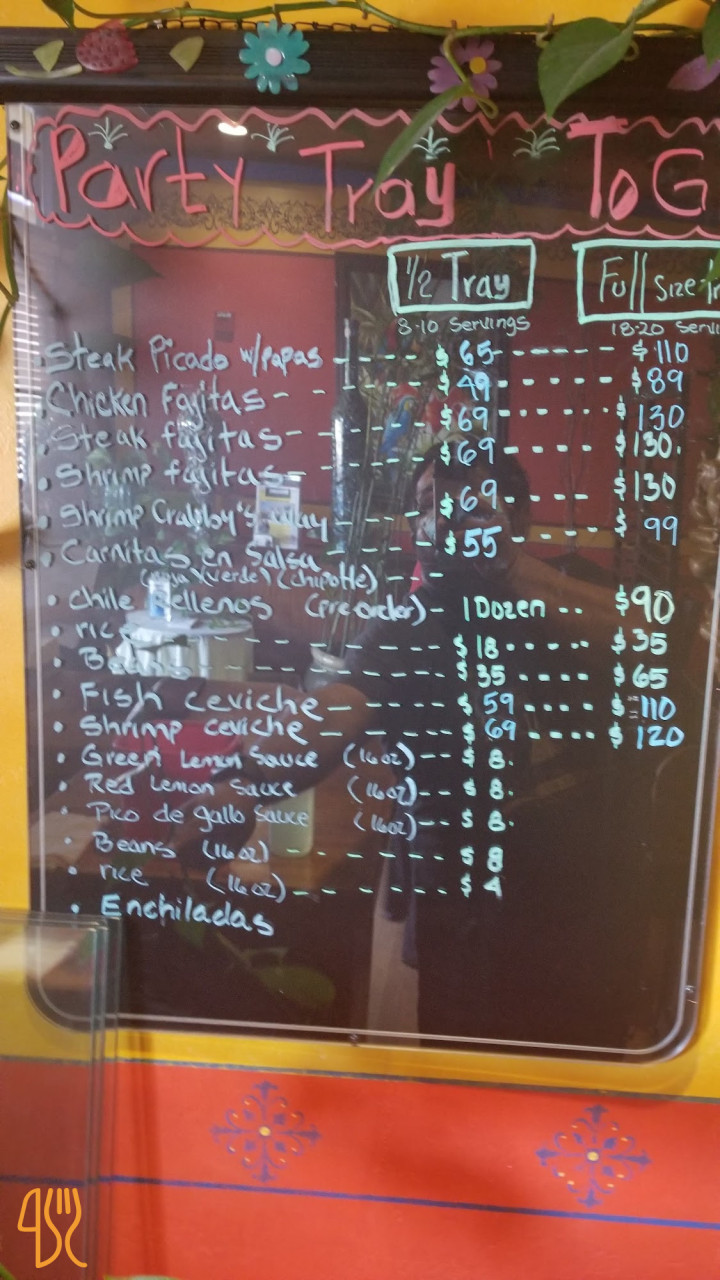 Party Tray To G
1/2 Tray Full Size Tr
8-10 Servings 18-20 Servi
Steak Picado w/papas $65 $110
Chicken Fajitas $49 $89
Steak fajitas $69 $130
Shrimp fajitas $69 $130.
Shrimp Crabby's way $69 $130
Carnitas en Salsa $55 $99
(roja) (verde) (chipotle)
Chile rellenos (pre order) 1 Dozen $90
rice $18 $35
Beans $35 $65
Fish ceviche $59 $110
Shrimp ceviche $69 $120
Green Lemon Sauce (16oz) $8.
Red Lemon Sauce (16oz) $8.
Pico de gallo Sauce (16oz) $8.
Beans (16oz) $8
rice (16oz) $4
Enchiladas